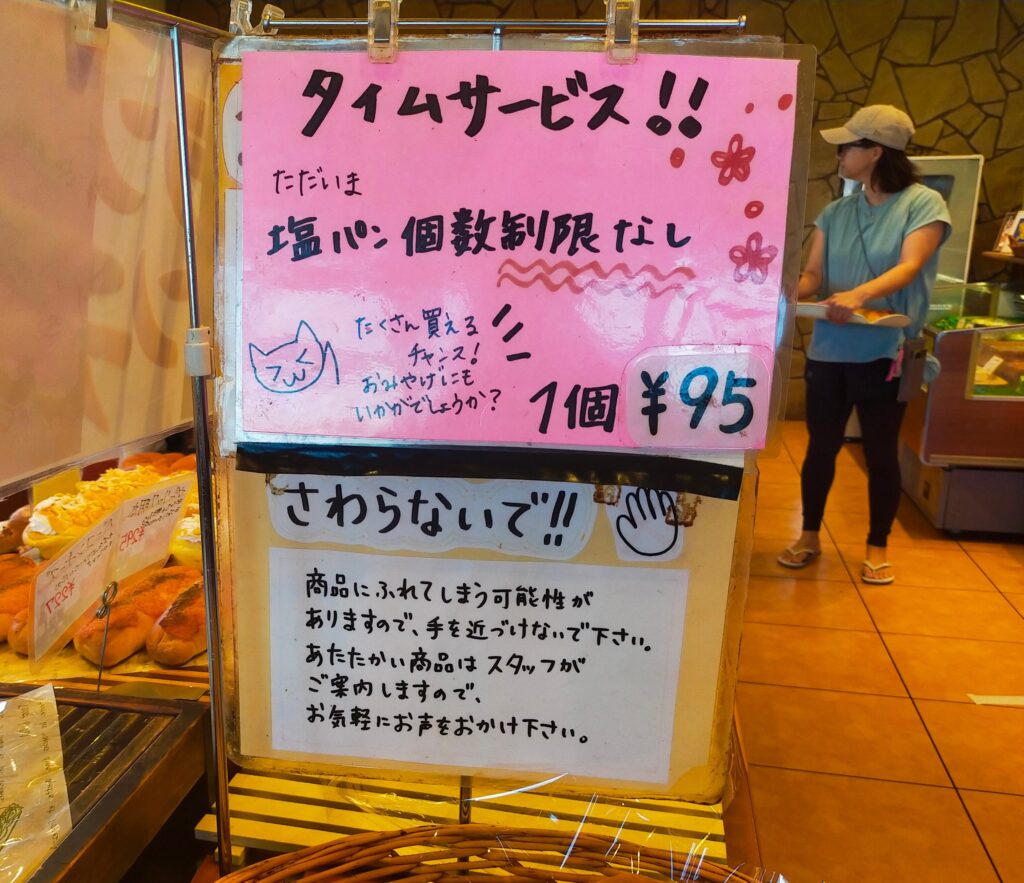 タイムサービス!!
ただいま
塩パン 個数制限なし
たくさん買える
チャンス!
おみやげにも
いかがでしょうか?
1個 ¥95
さわらないで!!
商品にふれてしまう可能性が
ありますので、手を近づけないで下さい。
あたたかい商品は スタッフが
ご案内しますので、
お気軽にお声をおかけ下さい。